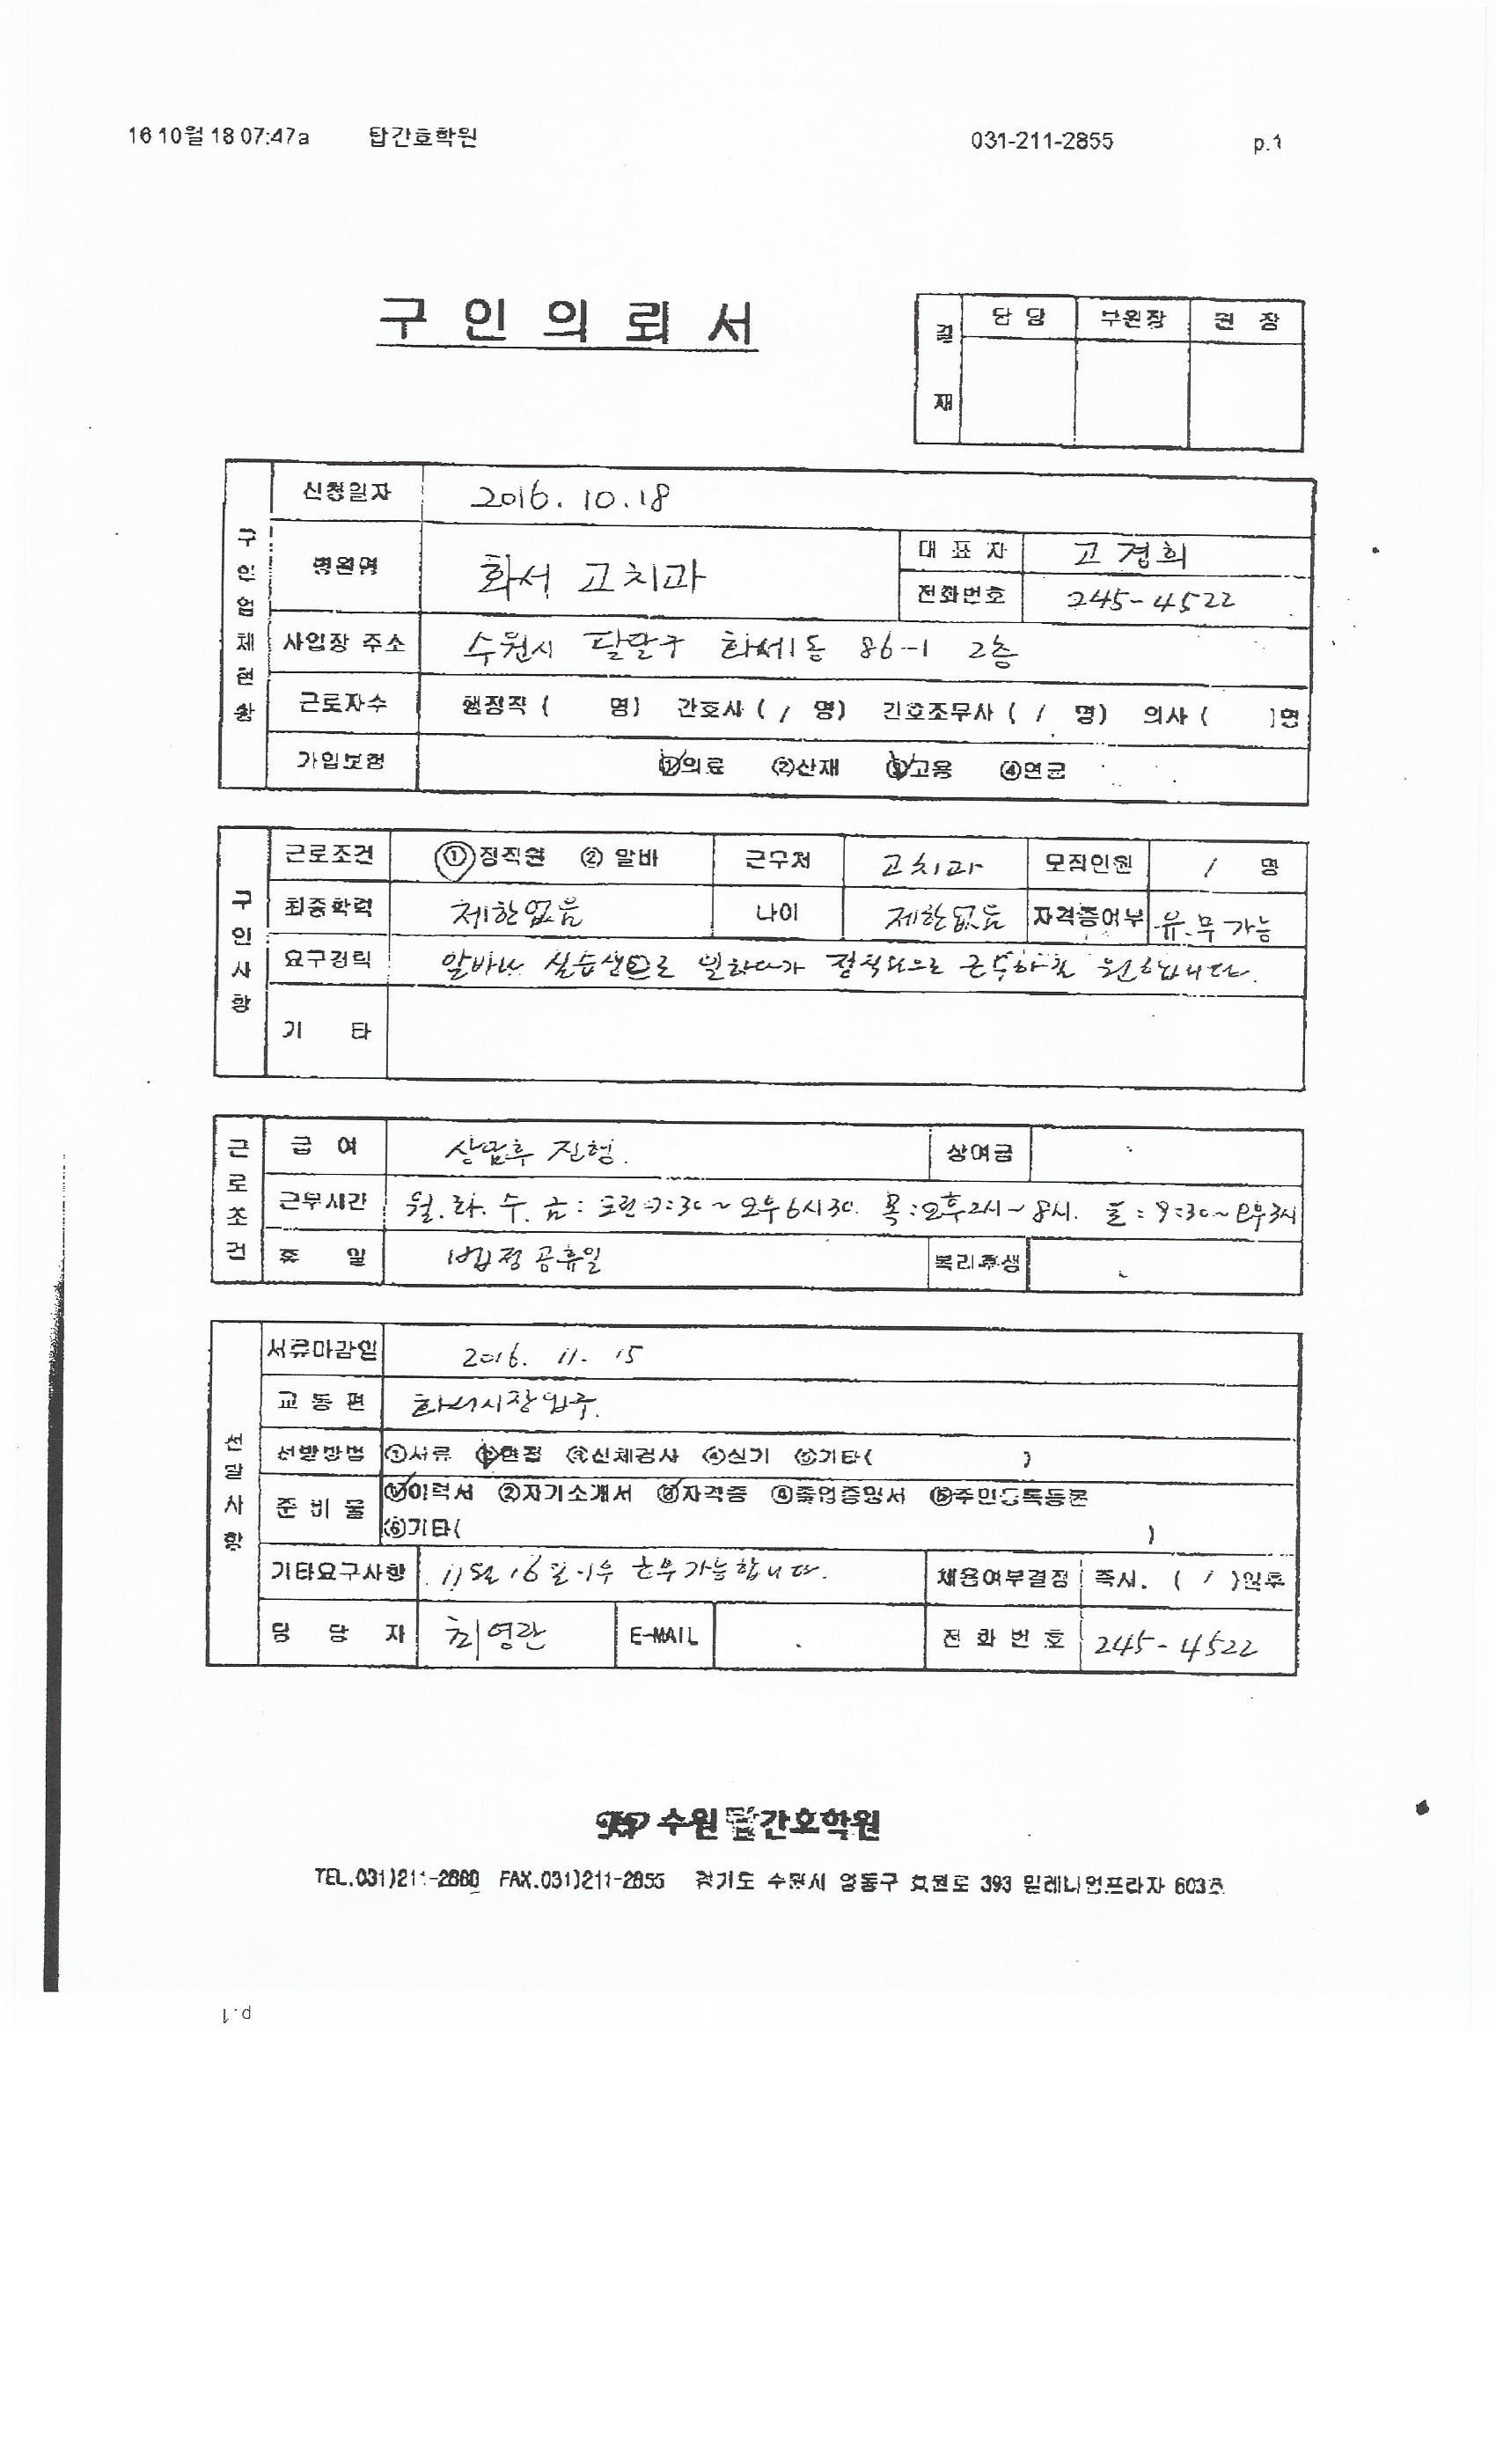 16 10월 18 07:47a 탑간호학원 031-211-2855 p.1
구 인 의 뢰 서
결 재 담 당 부원장 원 장
구 인 업 체 현 황
신청일자 2016. 10. 18
병원명 화서 고치과 대 표 자 고 경희
전화번호 245-4522
사업장 주소 수원시 팔달구 화서1동 86-1 2층
근로자수 행정직 ( 명) 간호사 ( / 명) 간호조무사 ( / 명) 의사 ( )명
가입보험 ①의료 ②산재 ③고용 ④연금
구 인 사 항
근로조건 ①정직원 ② 알바 근무처 고치과 모집인원 / 명
최종학력 제한없음 나이 제한없음 자격증여부 유.무 가능
요구경력 알바나 실습생으로 일하다가 정식으로 근무하길 원합니다.
기 타
근 로 조 건
급 여 상담후 진행. 상여금
근무시간 월.화.수.금: 오전 9:30~오후6시30. 목:오후2시~8시. 토: 9:30~오후3시
휴 일 법정 공휴일 복리후생
선 발 사 항
서류마감일 2016. 11. 15
교 통 편 화서시장입구.
선발방법 ①서류 ②면접 ③신체검사 ④실기 ⑤기타( )
준 비 물 ①이력서 ②자기소개서 ③자격증 ④졸업증명서 ⑤주민등록등본
⑥기타( )
기타요구사항 11월 16일 근무가능합니다. 채용여부결정 즉시. ( / )일후
담 당 자 최영란 E-MAIL 전 화 번 호 245-4522
수원탑간호학원
TEL.031)211-2880 FAX.031)211-2855 경기도 수원시 영통구 효원로 393 밀레니엄프라자 603호
p.1